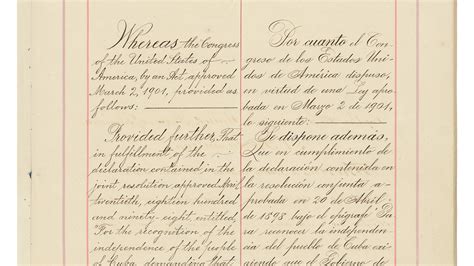 Whereas the Congress
of the United States of
America, by an Act approved
March 2, 1901, provided as
follows:
Provided further, That
in fulfillment of the
declaration contained in the
joint resolution approved April
twentieth, eighteen hundred
and ninety eight, entitled,
"For the recognition of the
independence of the people
of Cuba, demanding that
Por cuanto el Con-
greso de los Estados Uni-
dos de América dispuso,
en virtud de una Ley apro-
bada en Marzo 2 de 1901,
lo siguiente:
Se dispone además,
Que en cumplimiento de
la declaración contenida en
la resolución conjunta a-
probada en 20 de Abril
de 1898 bajo el epígrafe "Pa-
ra reconocer la independen-
cia del pueblo de Cuba exi-
giendo que el Gobierno de